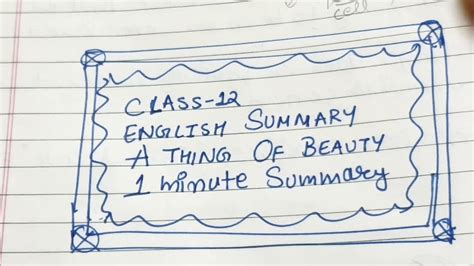 cell
CLASS-12
ENGLISH SUMMARY
A THING OF BEAUTY
1 minute Summary